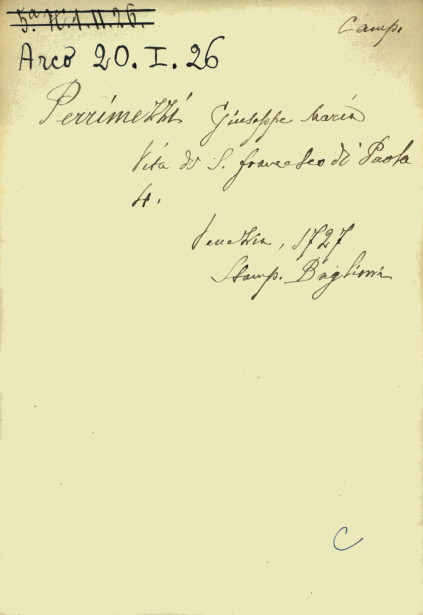 5.a N.1.II.26.
Camp.
Arco 20.I.26
Perrimezzi Giuseppe Maria
Vita di S. Francesco di Paola
4.
Venezia, 1727
Stamp. Baglioni
C